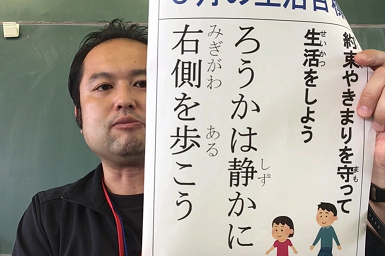 月の生活目標
約束やきまりを守って
生活をしよう
ろうかは静かに
右側を歩こう